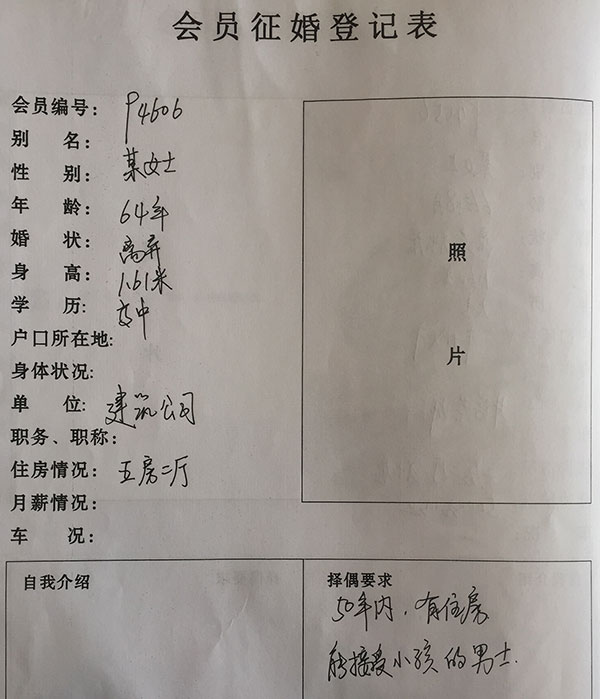 会员征婚登记表
会员编号： P4606
别 名：
性 别： 某女士
年 龄： 64年
婚 状： 离弃
身 高： 1.61米
学 历： 高中
户口所在地:
身体状况:
单 位: 建筑公司
职务、职称：
住房情况： 五房二厅
月薪情况：
车 况：
照
片
自我介绍
择偶要求
50年内，有住房
能接受小孩的男士.